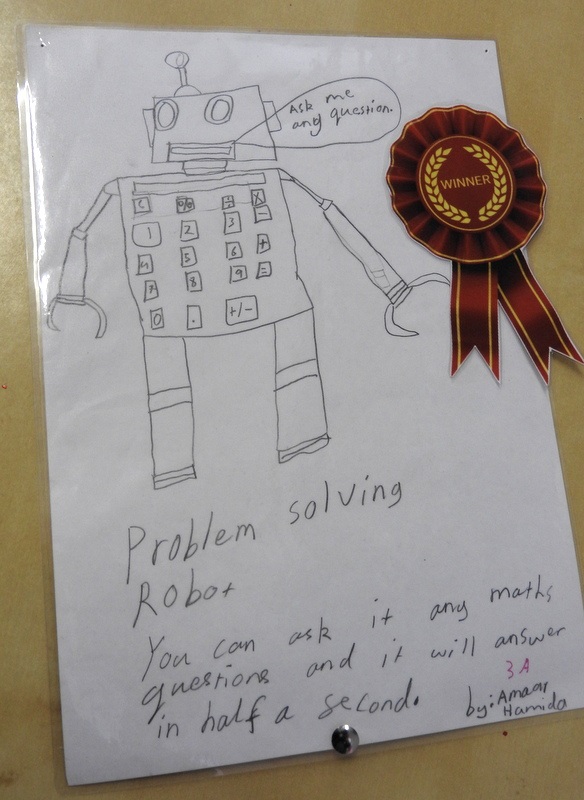 Ask me
any question.
WINNER
C % ÷ X
1 2 3 −
4 5 6 +
7 8 9 =
0 . +/−
Problem solving
Robot
You can ask it any maths
questions and it will answer
in half a second.
3A
by: Amaar
Hamida